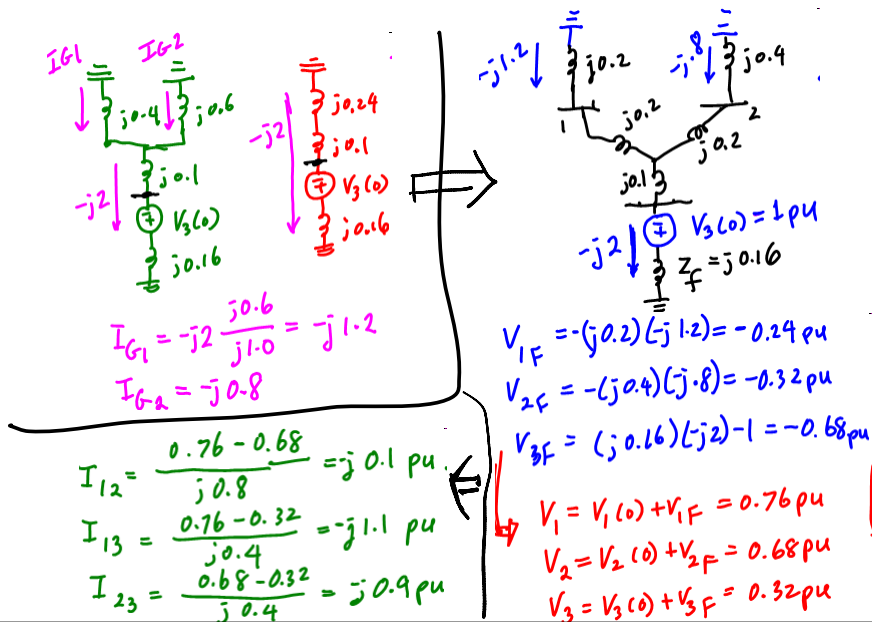 IG1
IG2
j0.4
j0.6
-j2
j0.1
V3(0)
j0.16
-j2
j0.24
j0.1
V3(0)
j0.16
I_G1 = -j2 j0.6/j1.0 = -j1.2
I_G2 = -j0.8
-j1.2
j0.2
-j.8
j0.4
1
2
j0.2
j0.2
j0.1
V3(0) = 1 pu
-j2
Z_f = j0.16
V_1F = -(j0.2)(-j1.2) = -0.24 pu
V_2F = -(j0.4)(-j.8) = -0.32 pu
V_3F = (j0.16)(-j2) -1 = -0.68 pu
V_1 = V_1(0) + V_1F = 0.76 pu
V_2 = V_2(0) + V_2F = 0.68 pu
V_3 = V_3(0) + V_3F = 0.32 pu
I_12 = 0.76 - 0.68/j0.8 = -j0.1 pu.
I_13 = 0.76 - 0.32/j0.4 = -j1.1 pu
I_23 = 0.68 - 0.32/j0.4 = -j0.9 pu